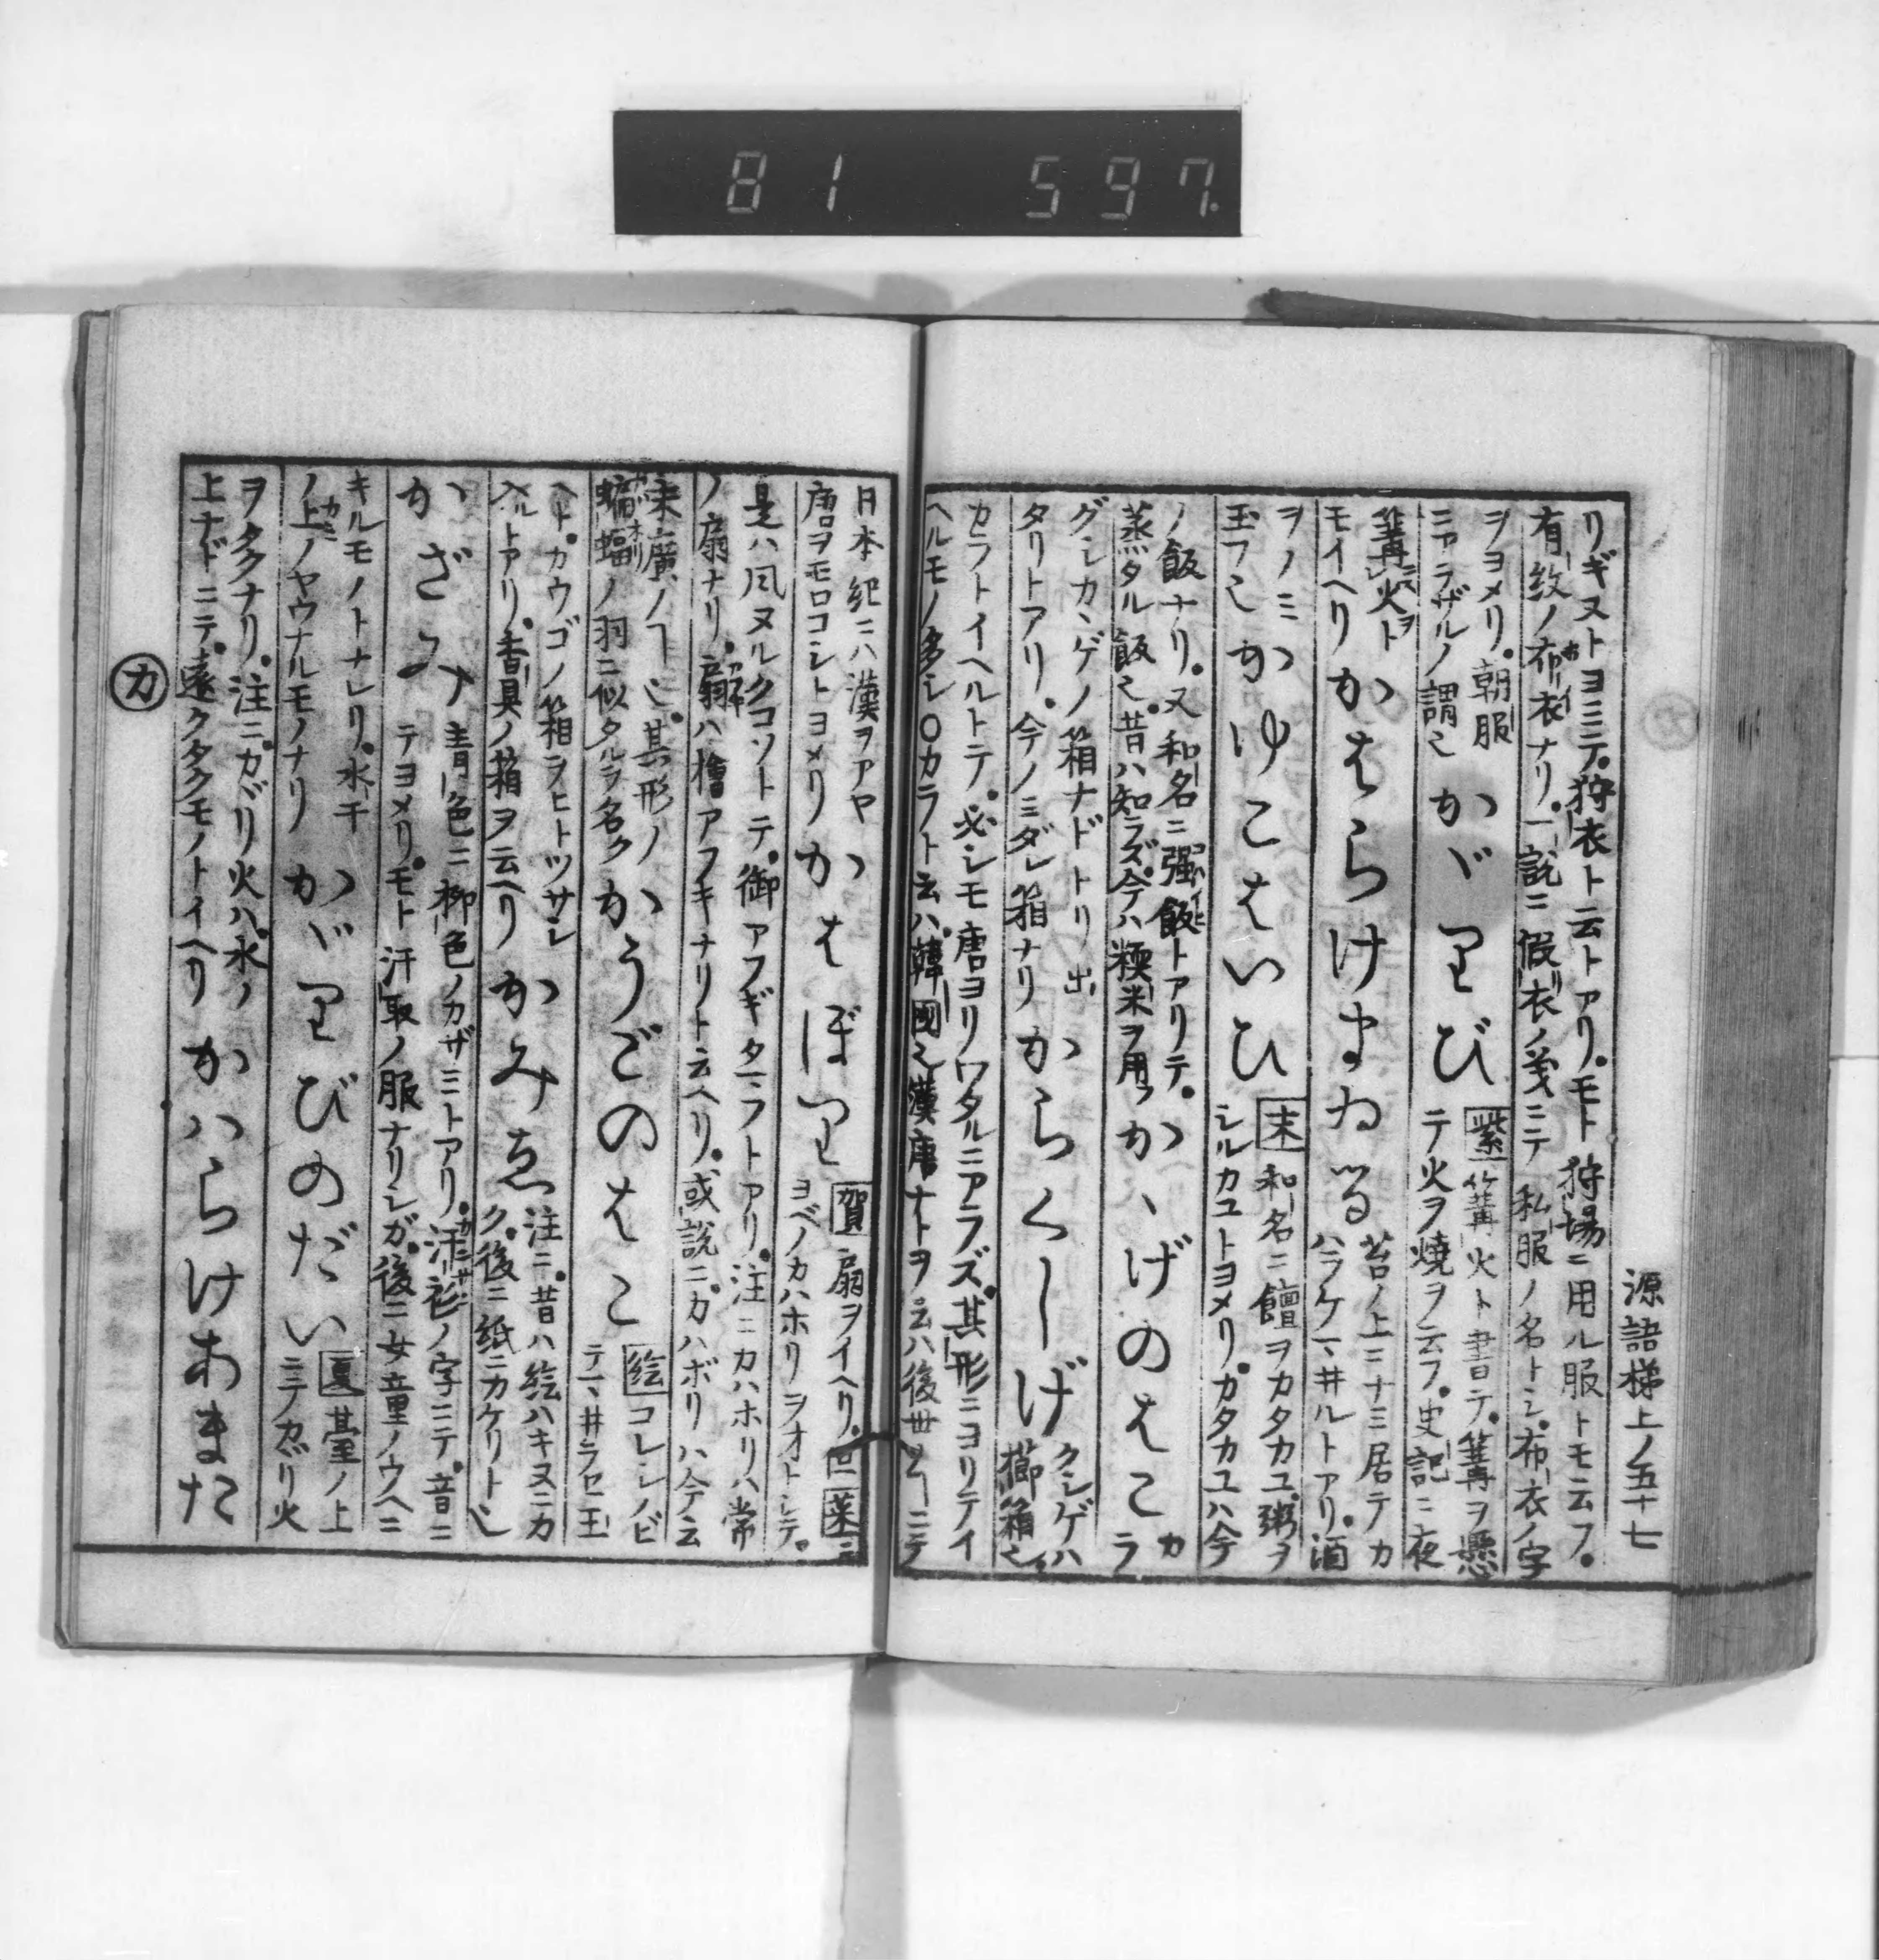 81 597.
源語梯上ノ五十七
リギヌトヨミテ。狩衣ト云トアリ。モト狩場ニ用ル服トモ云フ。
有紋ノ布衣ナリ。一説ニ假衣ノ義ニテ私服ノ名トシ。布衣ノ字
ヲヨメリ。朝服
ニアラザルノ謂也
かゞりび
紫 篝火ト書テ。篝ヲ懸
テ火ヲ焼ヲ云フ。史記ニ夜
篝火ト
モイヘリ
かはらけまゐる
苔ノ上ニナミ居テカ
ハラケマ井ルトアリ。酒
ヲノミ
玉フ也
かゆこはいひ
末 和名ニ饘ヲカタカユ。粥ヲ
シルカユトヨメリ。カタカユハ今
ノ飯ナリ。又和名ニ強飯トアリテ。
蒸タル飯也。昔ハ知ラズ。今ハ粳米ヲ用フ
かゝげのはこ
カ
ラ
グシカヽゲノ箱ナドトリ出
タリトアリ。今ノミダレ箱ナリ
からくしげ
クシゲハ
櫛箱也
カラトイヘルトテ。必シモ唐ヨリワタルニアラズ。其形ニヨリテイ
ヘルモノ多シ〇カラト云ハ。韓國也漢唐ナトヲ云ハ後世ノ ニテ
日本紀ニハ漢ヲアヤ
唐ヲモロコシトヨメリ
かはぼり
賀 扇ヲイヘリ。 菜
ヨベノカハホリヲオトシテ。
是ハ風ヌルクコソトテ。御アフギタマフトアリ。注ニカハホリハ常
ノ扇ナリ。扇ハ檜アフキナリト云ヘリ。或説ニ。カハボリハ今云
末廣ノ 也。其形ノ
蝙蝠ノ羽ニ似タルヲ名ク
かうごのはこ
絵 コレシノビ
テマ井ラセ玉
ヘト。カウゴノ箱ヲヒトツサシ
入ルトアリ。香具ノ箱ヲ云ヘリ
かみゑ
注ニ。昔ハ絵ハキヌニカ
ク。後ニ紙ニカケリト也
かざみ
青色ニ柳色ノカザミトアリ。汗衫ノ字ニテ。音ニ
テヨメリ。モト汗取ノ服ナリシガ。後ニ女童ノウヘニ
キルモノトナレリ。水干
ノ上ノヤウナルモノナリ
かゞりびのだい
夏 䑓ノ上
ニテカヾリ火
ヲタクナリ。注ニ。カヾリ火ハ。水ノ
上ナドニテ。遠クタクモノトイヘリ
かハらけあまた
カ